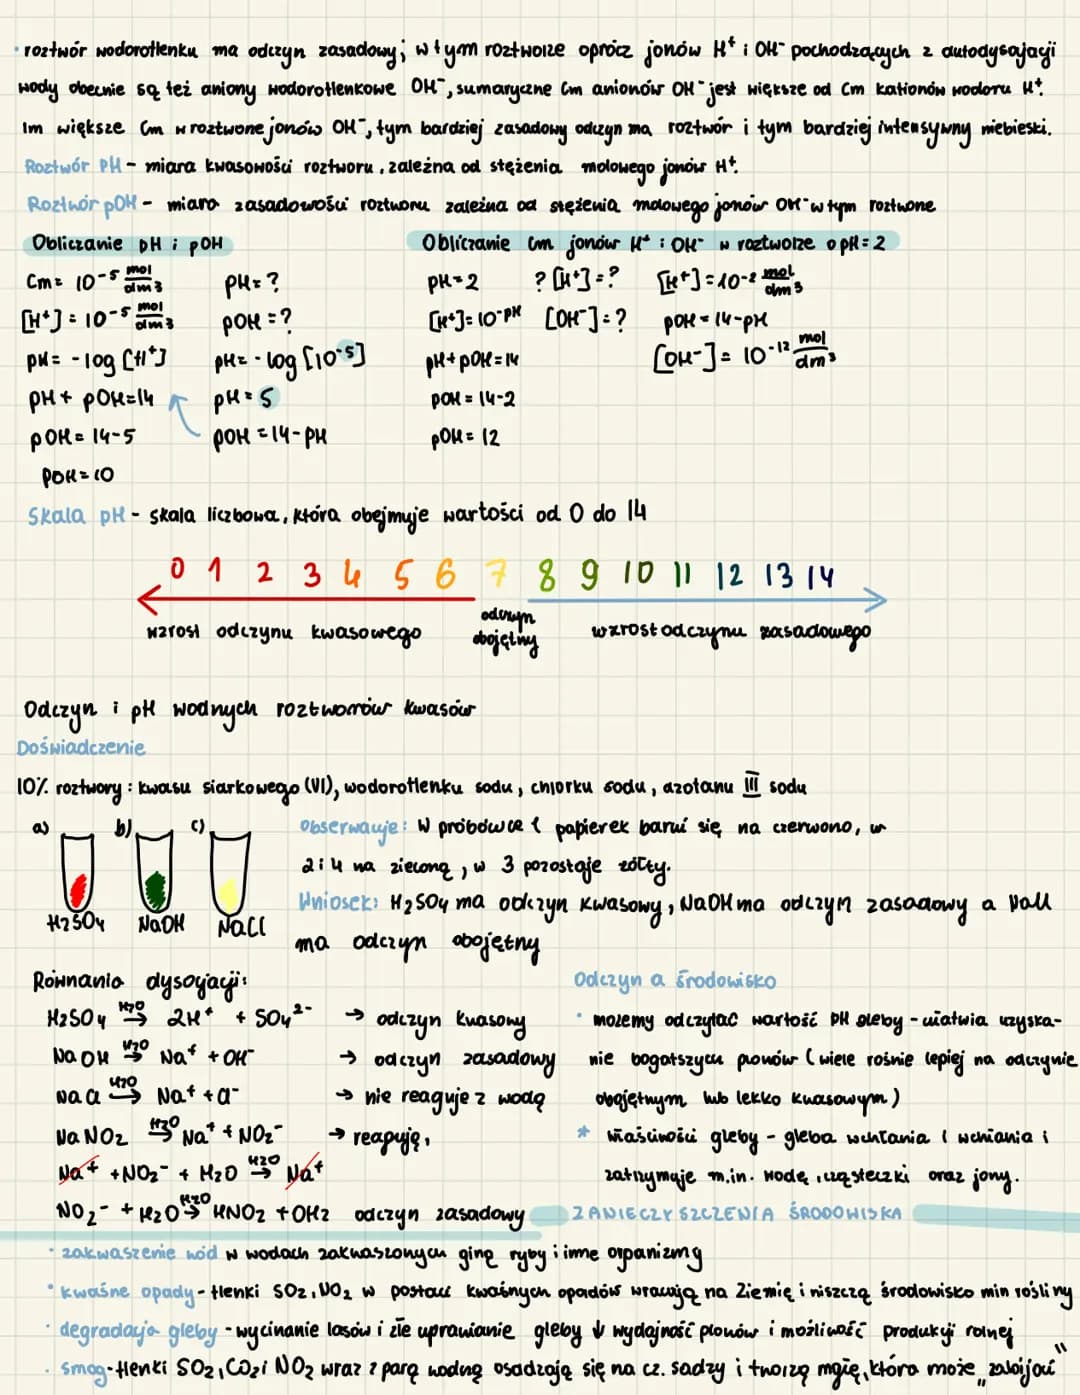 · roztwór wodorotlenku ma odczyn zasadowy; w tym roztworze oprócz jonów H⁺ i OH⁻ pochodzących z autodysojacji
wody obecnie są też aniony wodorotlenkowe OH⁻, sumaryczne Cm anionów OH⁻ jest większe od Cm kationów wodoru H⁺.
Im większe Cm w roztworze jonów OH⁻, tym bardziej zasadowy odczyn ma roztwór i tym bardziej intensywny niebieski.
Roztwór pH - miara kwasowości roztworu, zależna od stężenia molowego jonów H⁺.
Roztwór pOH - miara zasadowości roztworu zależna od stężenia molowego jonów OH⁻ w tym roztworze
Obliczanie pH i pOH
Cm = 10⁻⁵ mol/dm³ pH = ?
[H⁺] = 10⁻⁵ mol/dm³ pOH = ?
pH = -log [H⁺] pH = -log [10⁻⁵]
pH + pOH = 14 pH = 5
pOH = 14-5 pOH = 14-pH
pOH = 10
Obliczanie Cm jonów H⁺ i OH⁻ w roztworze o pH = 2
pH = 2 ? [H⁺] = ? [H⁺] = 10⁻² mol/dm³
[H⁺] = 10⁻ᵖᴴ [OH⁻] = ? pOH = 14-pH
pH + pOH = 14 [OH⁻] = 10⁻¹² mol/dm³
pOH = 14-2
pOH = 12
Skala pH - skala liczbowa, która obejmuje wartości od 0 do 14
0 1 2 3 4 5 6 7 8 9 10 11 12 13 14
wzrost odczynu kwasowego odczyn obojętny wzrost odczynu zasadowego
Odczyn i pH wodnych roztworów kwasów
Doświadczenie
10% roztwory: kwasu siarkowego (VI), wodorotlenku sodu, chlorku sodu, azotanu III sodu
a) b) c)
H₂SO₄ NaOH NaCl
Obserwacje: W probówce 1 papierek barwi się na czerwono, w
2 i 4 na zieloną, w 3 pozostaje żółty.
Wniosek: H₂SO₄ ma odczyn kwasowy, NaOH ma odczyn zasadowy a NaCl
ma odczyn obojętny
Równania dysocjacji:
H₂SO₄ H₂O→ 2H⁺ + SO₄²⁻ → odczyn kwasowy
NaOH H₂O→ Na⁺ + OH⁻ → odczyn zasadowy
NaCl H₂O→ Na⁺ + Cl⁻ → nie reaguje z wodą
NaNO₂ H₂O→ Na⁺ + NO₂⁻ → reagują,
Na⁺ + NO₂⁻ + H₂O H₂O→ Na⁺
NO₂⁻ + H₂O H₂O→ HNO₂ + OH₂ odczyn zasadowy
Odczyn a środowisko
· możemy odczytać wartość pH gleby - ułatwia uzyska-
nie bogatszych plonów (wiele rośnie lepiej na odczynie
obojętnym lub lekko kwasowym)
* właściwości gleby - gleba wchłania i
zatrzymuje m.in. wodę, cząsteczki oraz jony.
ZANIECZYSZCZENIA ŚRODOWISKA
· zakwaszenie wód w wodach zakwaszonych giną ryby i inne organizmy
· kwaśne opady - tlenki SO₂, NO₂ w postaci kwaśnych opadów wracają na Ziemię i niszczą środowisko min rośliny
· degradacja gleby - wycinanie lasów i złe uprawianie gleby ↓ wydajność plonów i możliwość produkcji rolnej
· smog - tlenki SO₂, CO₂ i NO₂ wraz z parą wodną osadzają się na cz. sadzy i tworzą mgłę, która może „zabijać"